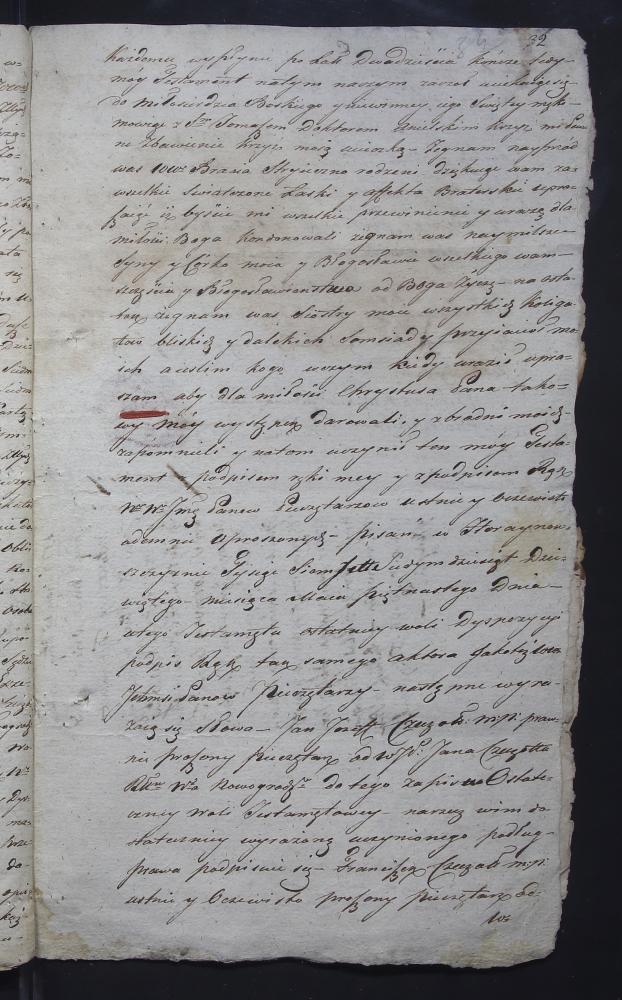 32
każdemu wypłynie po lat Dwadzieścia kończę tedy
moy Testament na tym naszym zaraz uciekaiąc się
do miłosierdzia Boskiego y niewinney iego Swiętey męki
mowiąc z Stm Tomaszem Doktorem Anielskim krzyż mi Pew
ne Zbawienie krzyż moią ucieczką Zegnam nayprzod
was Bracia Stryieczno rodzeni dziękuię wam za
wszelkie świadczone Łaski y affekta Braterskie upra
szaiąc iż byście mi wszelkie przewinienie y urazę dla
miłości Boga kondonowali zegnam was naymilsze
Syny y Corko moia y Błogosławię wszelkiego wam
szczęścia y Błogosławienstwa od Boga życzę na osta
tek zegnam was Siostry moie wszystkich kolliga
tow bliskich y dalekich Somsiady przyiacioł mo
ich a ieslim kogo w czym kiedy uraził upra
szam aby dla miłości Chrystusa Pana tako
wy móy występek darowali y zbrodni moich
zapomnieli y na tom uczynił ten móy Testa
ment z podpisem ręki mey y z podpisem Rąk
Jmć Panow Pieczętarzow ustnie y Oczewisto
odemnie uproszonych pisań w Horaynow
szczyznie Tysiąc Siedmset Siedymdziesiąt Dzie
wiątego miesiąca Maia Piętnastego Dnia
u tego Testamętu ostatniey woli Dyspozycyi
podpis Rąk tak samego aktora Jakoteż
Ichmsć Panow Pieczętarzy następne wyra
żaią się Słowa Jan Jozeff Czeczott mpr praw
nie proszony Pieczętarz od WJP Jana Czeczotta
Wdztwa Nowogrodzgo do tego zapisu Ostate
czney woli Testamętowey na rzecz w nim do
statecznie wyrażoną uczynionego podług
prawa podpisuię się Franciszek Czeczott mpr
ustnie y Oczewisto proszony Pieczętarz od